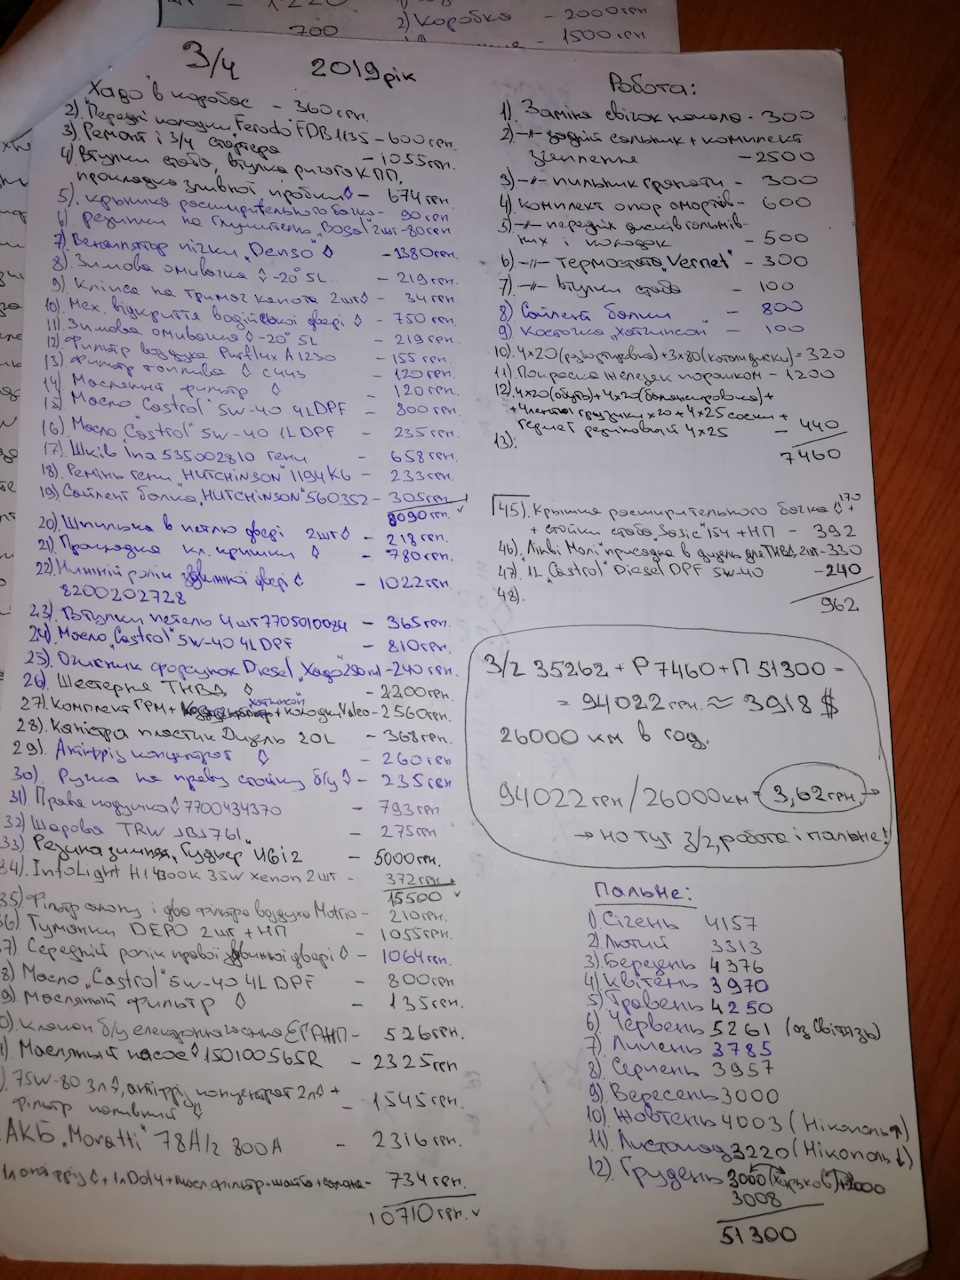 1220
700
2) Коробка - 2000грн
- 1500грн
З/ч 2019рік
Хадо в коробас - 360грн.
2). Передні колодки "Ferodo" FDB1135 - 600грн.
3) Ремонт і З/ч стартера - 1055грн.
4) Втулки стаба, втулка КПП,
прокладка зливної пробки◊ - 674грн
5). крышка расширительного бочка - 90грн
6) резинки на глушитель "Bosal" 2шт - 80грн
7) Вентилятор пічки "Denso" ◊ - 1380грн.
8). Зимова омивачка ◊ -20° 5L - 219грн
9). Кліпса на тримач капота 2шт◊ - 34грн
10). Мех. відкриття водійської двері ◊ - 750грн
11). Зимова омивачка ◊ -20° 5L - 219грн
12) Фильтр воздуха Purflux A1230 - 155грн
13). Фильтр топлива ◊ - 120грн
14) Масляный фильтр ◊ - 120грн
15) Масло "Castrol" 5w-40 4L DPF - 800грн
16) Масло "Castrol" 5w-40 1L DPF - 235грн
17). Шків Ina 535002810 гени - 658грн
18). Ремінь гени "HUTCHINSON" 1194K6 - 233грн
19). Сайлент балка "HUTCHINSON" 560352 - 305грн
8090грн
20). Шпилька в петлю двері 2шт◊ - 218грн
21). Прокладка кл. кришки ◊ - 780грн
22). Нижній ролік здвижної двері◊ - 1022грн
8200202728
23). Втулки петель 4шт 7705010084 - 365грн
24). Масло "Castrol" 5w-40 4L DPF - 810грн
25). Очистник форсунок Diesel "Хадо" 250ml - 240грн
26). Шестерня ТНВД ◊ - 2200грн
хатчінсон
27). Комплект ГРМ + колодки Valeo - 2560грн
28). Каністра пластик Дизель 20L - 368грн
29). Антифріз концентрат ◊ - 260грн
30). Ручка на праву стойку б/у ◊ - 235грн
31). Права подушка ◊ 7700434370 - 793грн
32) Шарова TRW JBJ761 - 275грн
33) Резина зимняя "Гудьер" - 5000грн
34). InfoLight H1 4300K 35w xenon 2шт - 372грн
15500
35). Фільтр салону і два фільтра воздуха Motrio - 210грн
36) Туманки DEPO 2шт + НП - 1055грн.
37). Середній ролік правої здвижної двері◊ - 1064грн
8) Масло "Castrol" 5w-40 4L DPF - 800грн
9). Масляный фильтр ◊ - 135грн
0). Клапан б/у ЕГР+НП - 526грн.
1). Масляный насос ◊ 150100565R - 2325грн
). 75W-80 3л◊, антифріз концентрат 2л◊ +
Фільтр паливний ◊ - 1545грн.
АКБ "Moratti" 78А/г 800А - 2316грн.
1л антифріз◊ + 1л Dot4 + масл. фильтр + шайба + солона - 734грн
10710грн.
Робота:
1). Заміна свічок накала - 300
2) -//- задній сальник + комплект
зцеплення - 2500
3) -//- пильник гранати - 300
4) Комплект опор амортів - 600
5) -//- передніх дисків гальмів-
них і колодок - 500
6) -//- термостата "Vernet" - 300
7) -//- втулки стаба - 100
8) Сайлент балки - 800
9) Косточка "Хатчинсон" - 100
10). 4x20 (разбортировка) + 3x80 (катали диски) = 320
11) Покраска железек порошком - 1200
12). 4x20 (обувь) + 4x20 (балансировка) +
+ грузики x20 + 4x25 соски +
гермет резіновий 4x25 - 440
13). 7460
45). Крышка расширительного бочка ◊ 170 +
+ стойки стаба "Sasic" 154 + НП - 392
46). Лікві Молі присадка в дизель для ТНВД 2шт - 330
47). 1L "Castrol" Diesel DPF 5w-40 - 240
48). 962
З/ч 35262 + Р 7460 + П 51300 =
= 94022грн ≈ 3918 $
26000 км в год.
94022грн/26000км = 3,62грн. →
→ но тут З/ч, робота і пальне!
Пальне:
1). Січень 4157
2). Лютий 3313
3) Березень 4376
4) Квітень 3970
5) Травень 4250
6) Червень 5261 (оз. Світязь)
7) Липень 3785
8). Серпень 3957
9) Вересень 3000
10). Жовтень 4003 (Нікополь↑)
11). Листопад 3220 (Нікополь↓)
12). Грудень 3000 (Харьков) + 2000
3008
51300